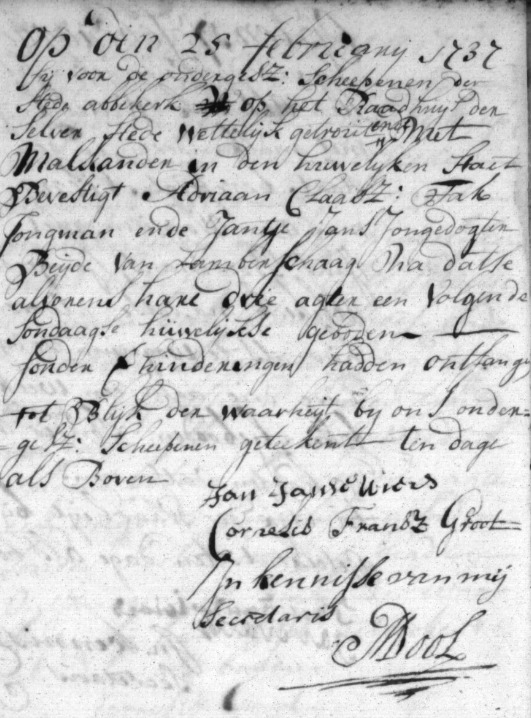 Op den 25 februarij 1737
sij voor de ondergesz: Scheepenen der
Stede abbekerk op het Raadhuijs der
selver stede wettelijk getrout ende Met
Malkanderen in den huwelijken Staet
Bevestigt Adriaan Claasz: Tak
Jongman ende Jantje Jans Jongedogter
Beijde van Lambertschaag Na datse
alvorens hare drie agter een volgende
sondaagse huwelijkse geboden
sonder hinderingen hadden ontfange
tot Blijk der waarheijt bij ons onder=
gesz: Scheepenen geteekent ten dage
als Boven
Jan Janse Wiers
Cornelis Fransz Groot
In kennisse van mij
Secretaris
Mool